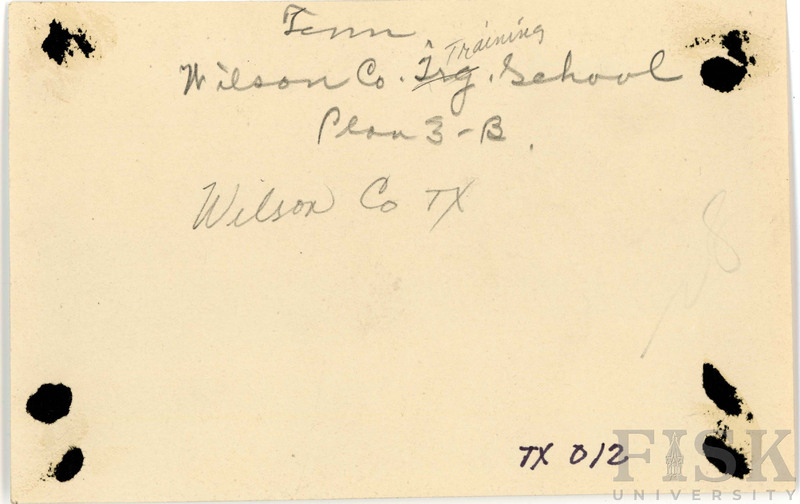 Tenn
Training
Wilson Co. Trg. School
Plan 3-B.
Wilson Co TX
TX 012
FISK
UNIVERSITY